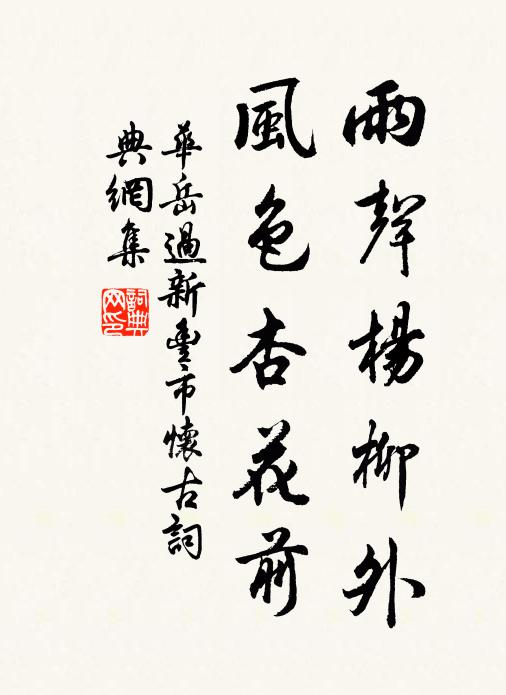 雨聲楊柳外
風色杏花前
華岳過新豐市懷古詞
典網集
詞典网印